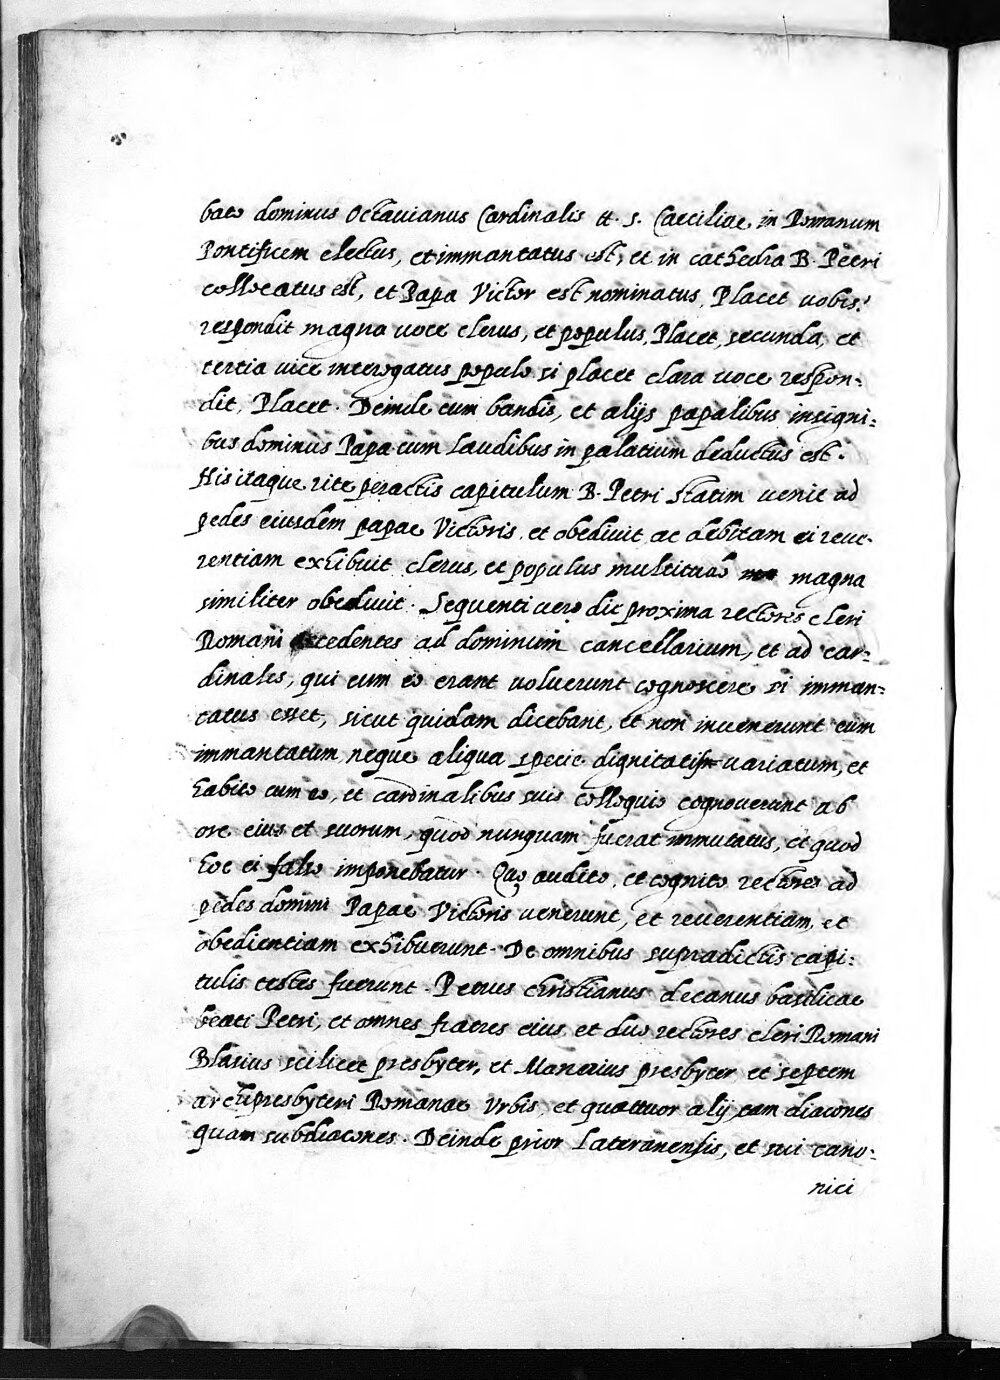 bato dominus Octauianus Cardinalis tt. S. Caeciliae in Romanum
Pontificem electus, et immantatus est, et in cathedra B. Petri
collocatus est, et Papa Victor est nominatus, Placet uobis?
respondit magna uoce clerus, et populus, Placet, secunda, et
tertia uice interogatus populo si placet clara uoce respon-
dit, Placet. Deinde cum bandis, et alijs papalibus insigni-
bus dominus Papa cum Laudibus in palatium deductus est.
His itaque rite peractis capitulum B. Petri statim uenit ad
pedes eiusdem papae Victoris, et obediuit, ac debitam ei reue-
rentiam exhibuit clerus, et populus multitudo magna
similiter obediuit. Sequenti uero die proxima rectores cleri
Romani accedentes ad dominum cancellarium, et ad car-
dinales, qui cum eo erant uoluerunt cognoscere si imman-
tatus esset, sicut quidam dicebant, et non inuenerunt eum
immantatum, neque aliqua specie dignitatis uariatum, et
habito cum eo, et cardinalibus suis colloquio cognouerunt ab
ore eius et suorum, quod nunquam fuerat immutatus, et quod
hoc ei falso imponebatur. Quo audito, et cognito rectores ad
pedes domini Papae Victoris uenerunt, et reuerentiam, et
obedientiam exhibuerunt. De omnibus supradictis capi-
tulis testes fuerunt. Petrus Christianus decanus basilicae
beati Petri, et omnes fratres eius et duo rectores cleri Romani
Blasius scilicet presbyter, et Manerius presbyter et septem
archipresbyteri Romanae Vrbis, et quattuor alij tam diacones
quam subdiacones. Deinde prior Lateranensis, et sui cano-
nici